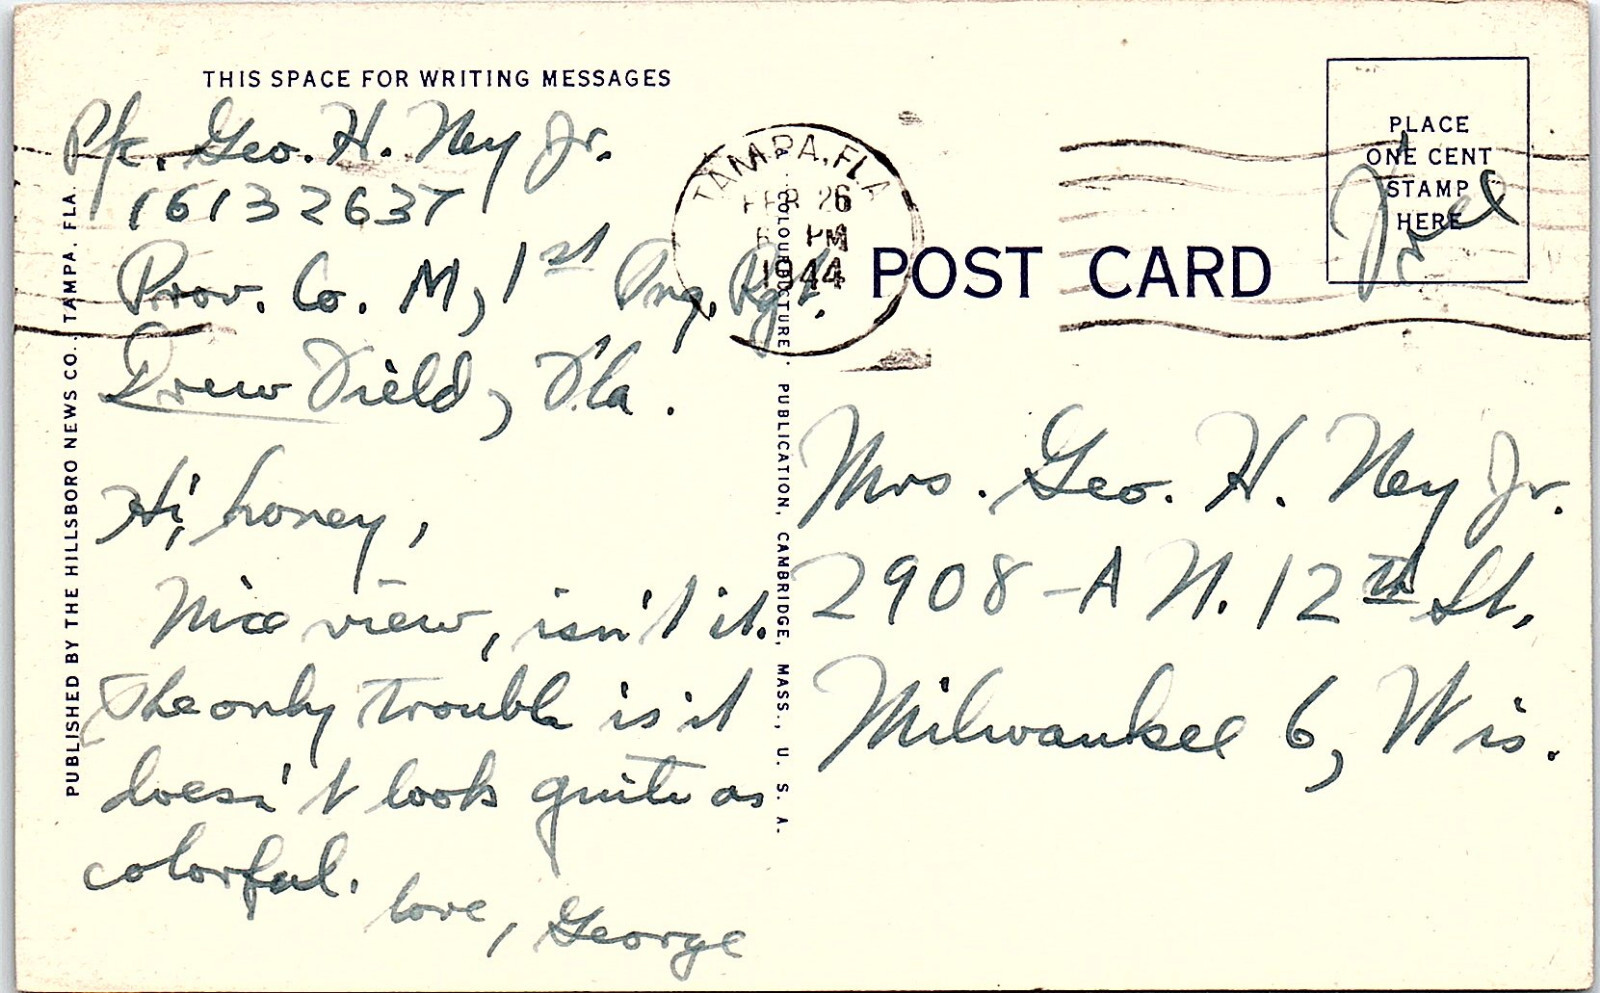 THIS SPACE FOR WRITING MESSAGES
Pfc. Geo. H. Ney Jr.
16132637
Prov. Co. M, 1st Rgt.
Drew Field, Fla.
Hi, honey,
Nice view, isn't it.
The only trouble is it
doesn't look quite as
colorful.
love, George
PUBLISHED BY THE HILLSBORO NEWS CO., TAMPA, FLA.
TAMPA, FLA
FEB 26
PM
1944
PUBLICATION, CAMBRIDGE, MASS., U. S. A.
POST CARD
PLACE
ONE CENT
STAMP
HERE
Free
Mrs. Geo. H. Ney Jr.
2908-A N. 12th St,
Milwaukee 6, Wis.